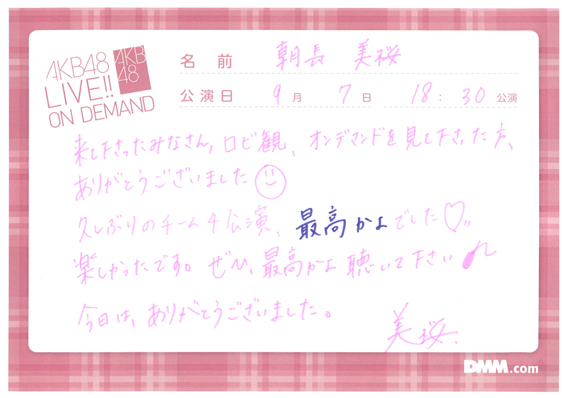 AKB48
LIVE!!
ON DEMAND
AKB
48
名前 朝長 美桜
公演日 9月 7日 18:30公演
来て下さったみなさん、ロビ観、オンデマンドを見て下さった方、
ありがとうございました
久しぶりのチーム4公演、最高かよでした♡!!
楽しかったです。ぜひ、最高かよ聴いて下さい♪
今日は、ありがとうございました。
美桜.
DMM.com